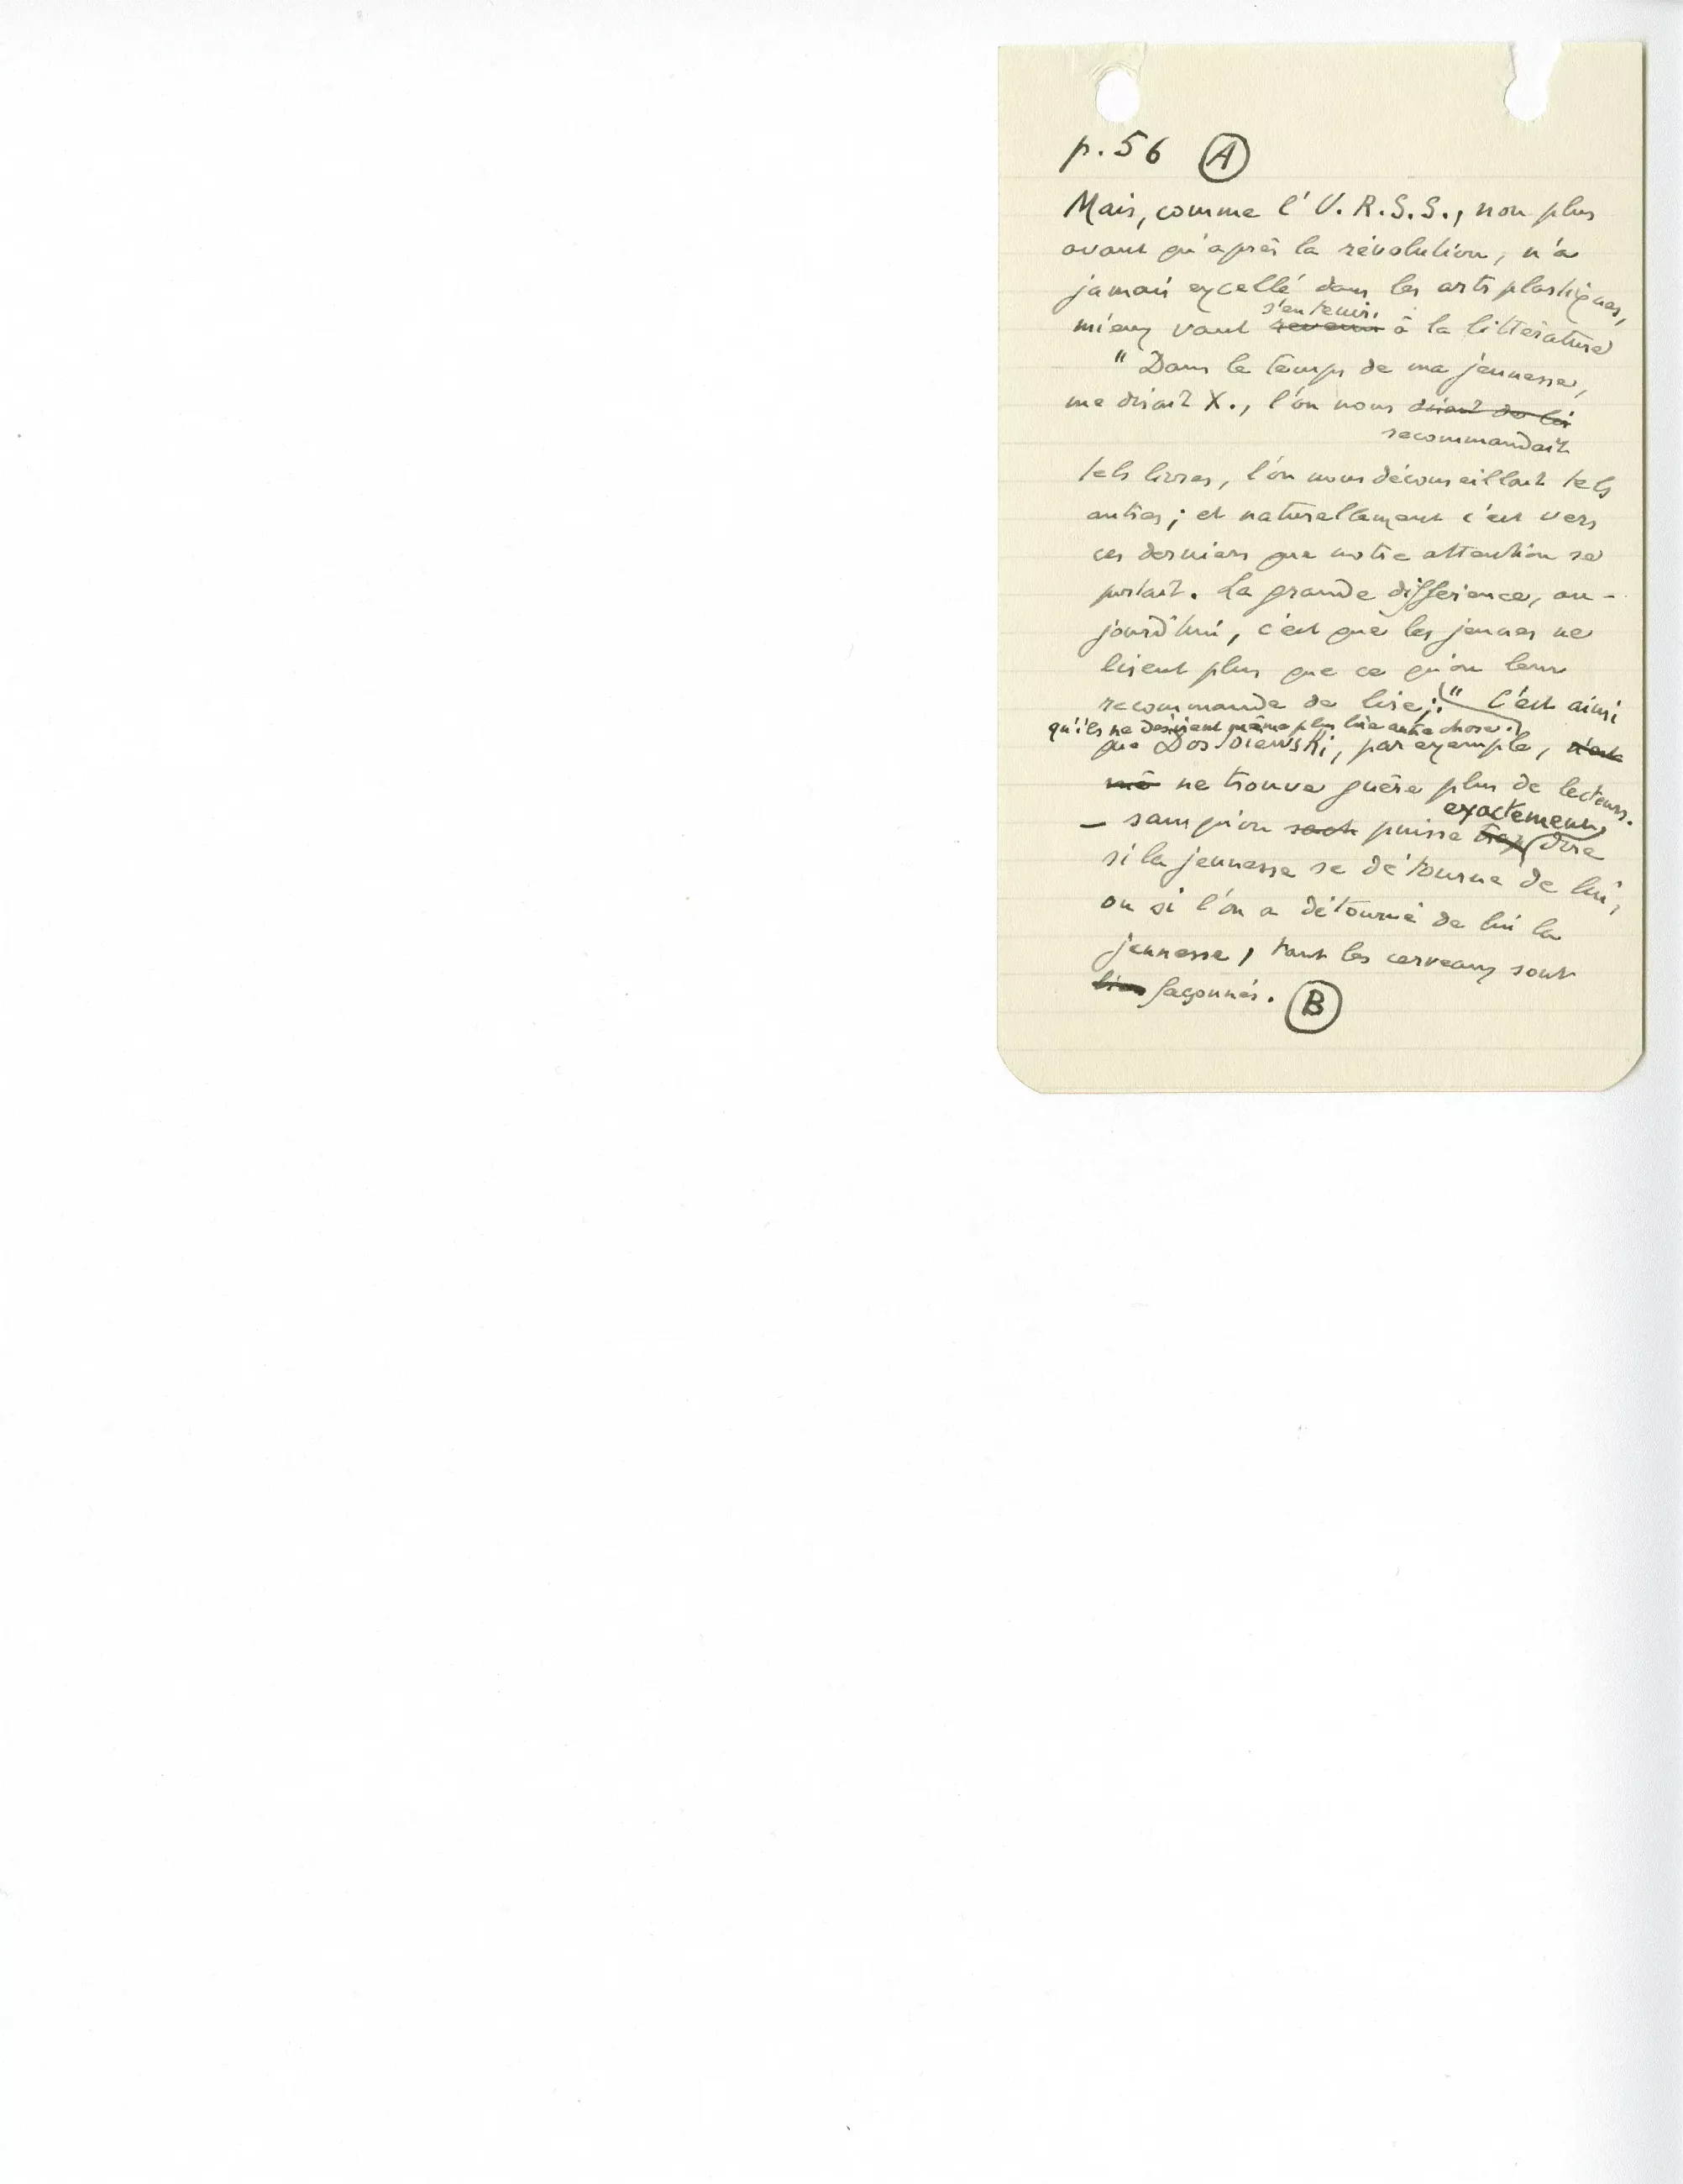 p. 56 A
Mais, comme l'U.R.S.S., non plus
avant qu'après la révolution, n'a
jamais excellé dans les arts plastiques,
s'en tenir
mieux vaut revenir à la littérature
" Dans le temps de ma jeunesse,
me disait X., l'on nous disait de
recommandait
tels livres, l'on nous déconseillait tels
autres ; et naturellement c'est vers
ces derniers que notre attention se
portait. La grande différence, au-
jourd'hui, c'est que les jeunes ne
lisent plus que ce qu'on leur
recommande de lire ; " C'est ainsi
qu'ils ne désirent même plus lire autre chose.
que Dostoïewski, par exemple, n'est
mê ne trouve guère plus de lecteurs.
exactement
– sans qu'on sach puisse trop dire
si la jeunesse se détourne de lui,
ou si l'on a détourné de lui la
jeunesse, tant les cerveaux sont
façonnés. B